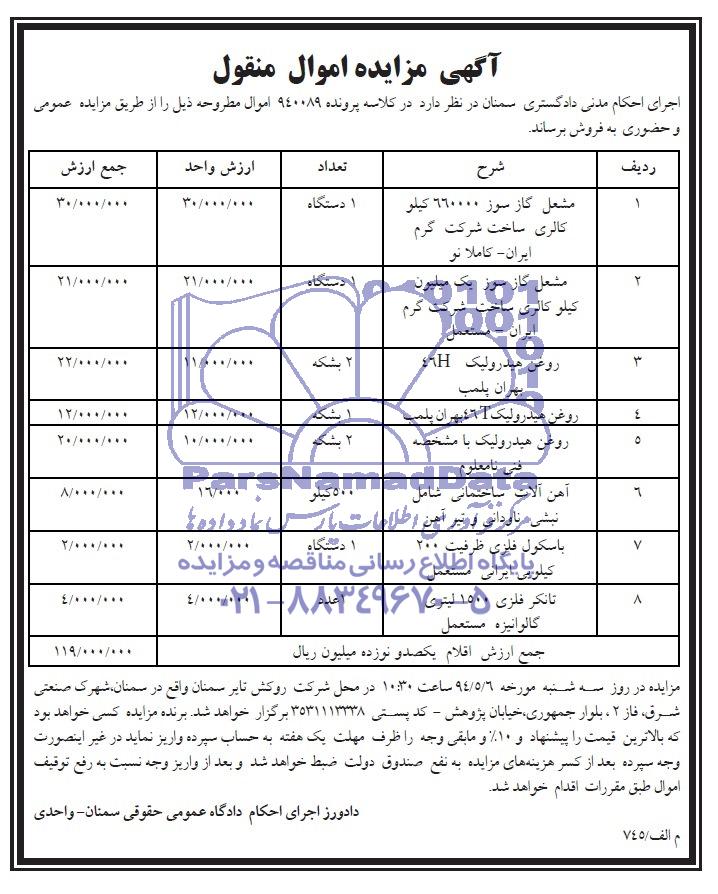 آگهی مزایده اموال منقول
اجرای احکام مدنی دادگستری سمنان در نظر دارد در کلاسه پرونده ۹۴۰۰۸۹ اموال مطروحه ذیل را از طریق مزایده عمومی
و حضوری به فروش برساند.
ردیف شرح تعداد ارزش واحد جمع ارزش
۱ مشعل گاز سوز ۶۶۰۰۰۰ کیلو ۱ دستگاه ۳۰/۰۰۰/۰۰۰ ۳۰/۰۰۰/۰۰۰
کالری ساخت شرکت گرم
ایران- کاملا نو
۲ مشعل گاز سوز یک میلیون ۱ دستگاه ۲۱/۰۰۰/۰۰۰ ۲۱/۰۰۰/۰۰۰
کیلو کالری ساخت شرکت گرم
ایران – مستعمل
۳ روغن هیدرولیک ۴۶H ۲ بشکه ۱۱/۰۰۰/۰۰۰ ۲۲/۰۰۰/۰۰۰
بهران پلمب
۴ روغن هیدرولیک۴۶T بهران پلمب ۱ بشکه ۱۲/۰۰۰/۰۰۰ ۱۲/۰۰۰/۰۰۰
۵ روغن هیدرولیک با مشخصه ۲ بشکه ۱۰/۰۰۰/۰۰۰ ۲۰/۰۰۰/۰۰۰
فنی نامعلوم
۶ آهن آلات ساختمانی شامل ۵۰۰کیلو ۱۶/۰۰۰ ۸/۰۰۰/۰۰۰
نبشی ناودانی و تیر آهن
۷ باسکول فلزی ظرفیت ۲۰۰ ۱ دستگاه ۲/۰۰۰/۰۰۰ ۲/۰۰۰/۰۰۰
کیلویی ایرانی مستعمل
۸ تانکر فلزی ۱۵۰۰ لیتری ۱عدد ۴/۰۰۰/۰۰۰ ۴/۰۰۰/۰۰۰
گالوانیزه مستعمل
جمع ارزش اقلام یکصدو نوزده میلیون ریال ۱۱۹/۰۰۰/۰۰۰
ParsNamadData
مرکز فرآوری اطلاعات پارس نماد داده ها
پایگاه اطلاع رسانی مناقصه و مزایده
۰۲۱-۸۸۳۴۹۶۷۰-۵
مزایده در روز سه شنبه مورخه ۹۴/۵/۶ ساعت ۱۰:۳۰ در محل شرکت روکش تایر سمنان واقع در سمنان،شهرک صنعتی
شرق، فاز ۲ ، بلوار جمهوری،خیابان پژوهش - کد پستی ۳۵۳۱۱۱۳۳۳۸ برگزار خواهد شد. برنده مزایده کسی خواهد بود
که بالاترین قیمت را پیشنهاد و ۱۰٪ و مابقی وجه را ظرف مهلت یک هفته به حساب سپرده واریز نماید در غیر اینصورت
وجه سپرده بعد از کسر هزینه‌های مزایده به نفع صندوق دولت ضبط خواهد شد و بعد از واریز وجه نسبت به رفع توقیف
اموال طبق مقررات اقدام خواهد شد.
دادورز اجرای احکام دادگاه عمومی حقوقی سمنان- واحدی
م الف/۷۴۵